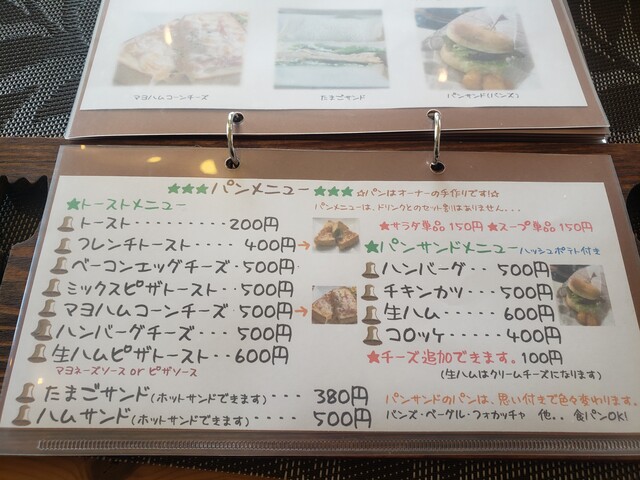 マヨハムコーンチーズ
たまごサンド
パンサンド(バンズ)
★★★パンメニュー★★★ ☆パンはオーナーの手作りです!☆
パンメニューは、ドリンクとのセット割はありません...
★トーストメニュー
トースト......... 200円
フレンチトースト..... 400円→
ベーコンエッグチーズ. 500円
ミックスピザトースト.. 500円
マヨハムコーンチーズ 500円→
ハンバーグチーズ... 500円
生ハムピザトースト.. 600円
マヨネーズソース or ピザソース
たまごサンド(ホットサンドできます)... 380円
ハムサンド(ホットサンドできます).... 500円
★サラダ単品150円 ★スープ単品150円
★パンサンドメニュー ハッシュポテト付き
ハンバーグ.. 500円
チキンカツ.. 500円
生ハム..... 600円
コロッケ.... 400円
★チーズ追加できます。100円
(生ハムはクリームチーズになります)
パンサンドのパンは、思い付きで色々変わります。
バンズ・ベーグル・フォカッチャ 他.. 食パンOK!